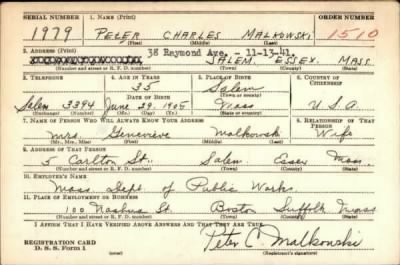 SERIAL NUMBER 1. NAME (Print) ORDER NUMBER
1979 PETER CHARLES MALKOWSKI 1510
(First) (Middle) (Last)
2. ADDRESS (Print) 38 Raymond Ave. - 11-13-41.
SALEM, ESSEX, MASS
(Number and street or R. F. D. number) (Town) (County) (State)
3. TELEPHONE 4. AGE IN YEARS 5. PLACE OF BIRTH 6. COUNTRY OF CITIZENSHIP
35 Salem
DATE OF BIRTH (Town or county)
Salem 3394 June 29, 1905 Mass U.S.A
(Exchange) (Number) (Mo.) (Day) (Yr.) (State or country)
7. NAME OF PERSON WHO WILL ALWAYS KNOW YOUR ADDRESS 8. RELATIONSHIP OF THAT PERSON
Mrs. Genevieve Malkowski Wife
(Mr., Mrs., Miss) (First) (Middle) (Last)
9. ADDRESS OF THAT PERSON
5 Carlton St. Salem Essex Mass.
(Number and street or R. F. D. number) (Town) (County) (State)
10. EMPLOYER'S NAME
Mass. Dept. of Public Works.
11. PLACE OF EMPLOYMENT OR BUSINESS
100 Nashua St. Boston Suffolk Mass
(Number and street or R. F. D. number) (Town) (County) (State)
I AFFIRM THAT I HAVE VERIFIED ABOVE ANSWERS AND THAT THEY ARE TRUE.
REGISTRATION CARD
D. S. S. Form 1 Peter C. Malkowski
(Registrant's signature)